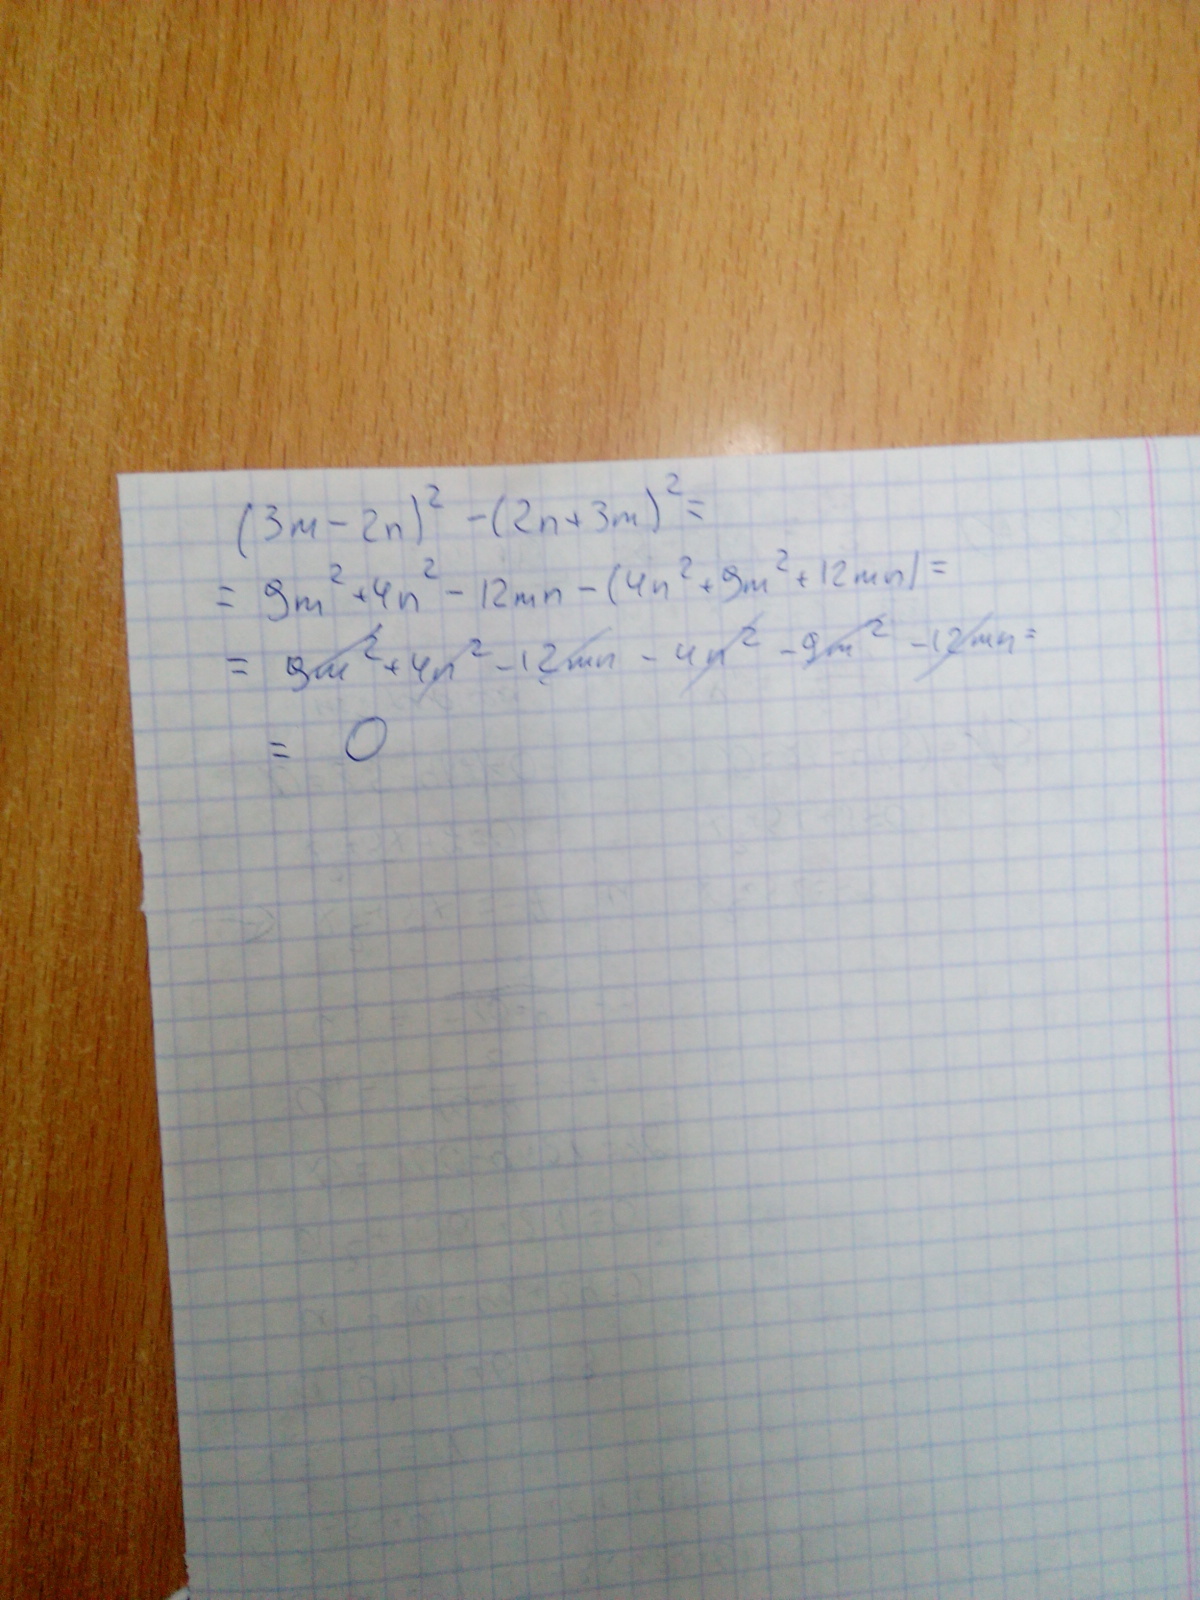 (3m-2n)² -(2n+3m)²=
= 9m²+4n²-12mn-(4n²+9m²+12mn)=
= 9m²+4n²-12mn-4n²-9m²-12mn=
= 0